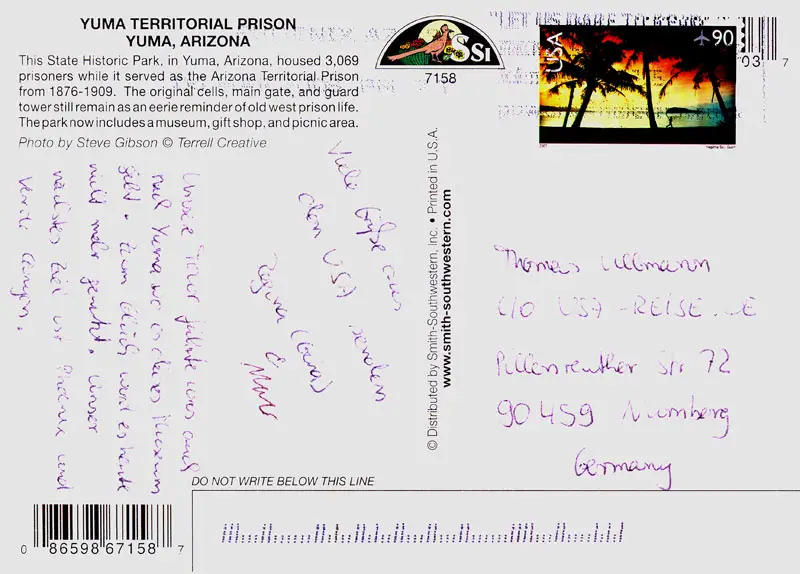 YUMA TERRITORIAL PRISON
YUMA, ARIZONA
This State Historic Park, in Yuma, Arizona, housed 3,069
prisoners while it served as the Arizona Territorial Prison
from 1876-1909. The original cells, main gate, and guard
tower still remain as an eerie reminder of old west prison life.
The park now includes a museum, gift shop, and picnic area.
Photo by Steve Gibson © Terrell Creative
SSI
7158
USA
90
03 7
Unsere Tour führte uns auch
nach Yuma wo es dieses Museum
gibt. Zum Glück wird es heute
nicht mehr genutzt. Unser
nächstes Ziel ist Phoenix und
Verde Canyon.
Viele Grüße aus
den USA senden
Regina
&
© Distributed by Smith-Southwestern, Inc. • Printed in U.S.A.
www.smith-southwestern.com
Thomas Ullmann
C/O USA-REISE. E
Pillenreuther Str 72
90459 Nürnberg
Germany
DO NOT WRITE BELOW THIS LINE
0 86598 67158 7